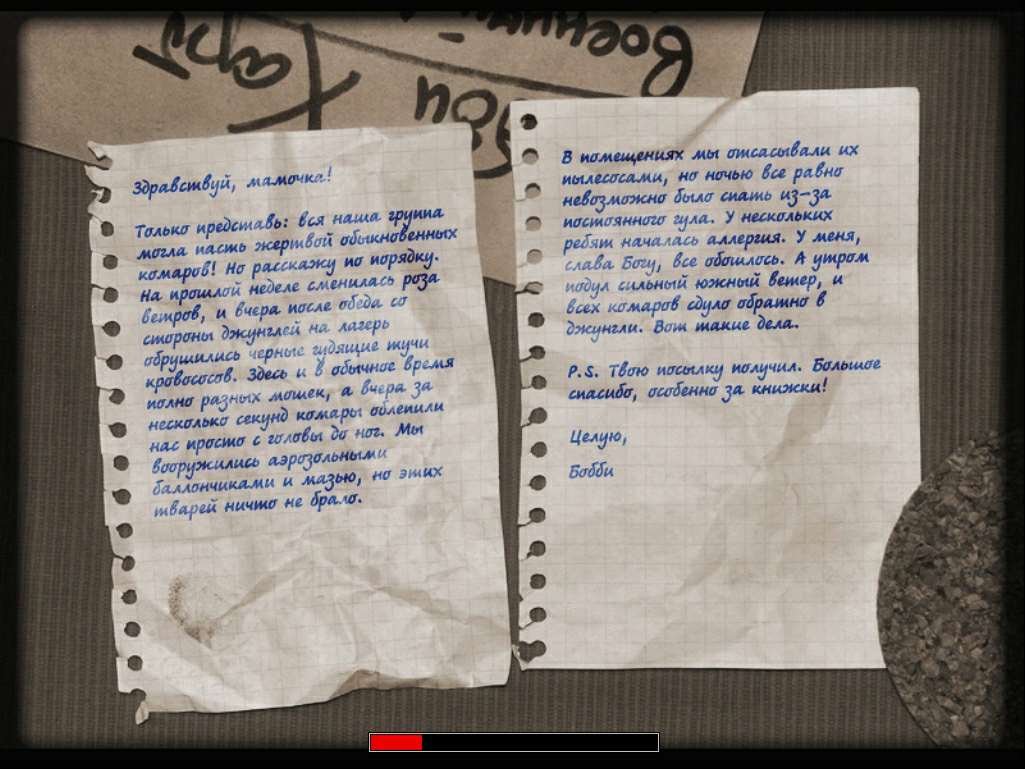 Военный
Эой
Карл
Здравствуй, мамочка!
Только представь: вся наша группа
могла пасть жертвой обыкновенных
комаров! Но расскажу по порядку.
На прошлой неделе сменилась роза
ветров, и вчера после обеда со
стороны джунглей на лагерь
обрушились черные гудящие тучи
кровососов. Здесь и в обычное время
полно разных мошек, а вчера за
несколько секунд комары облепили
нас просто с головы до ног. Мы
вооружились аэрозольными
баллончиками и мазью, но этих
тварей ничто не брало.
В помещениях мы отсасывали их
пылесосами, но ночью все равно
невозможно было спать из-за
постоянного гула. У нескольких
ребят началась аллергия. У меня,
слава Богу, все обошлось. А утром
подул сильный южный ветер, и
всех комаров сдуло обратно в
джунгли. Вот такие дела.
P.S. Твою посылку получил. Большое
спасибо, особенно за книжки!
Целую,
Бобби